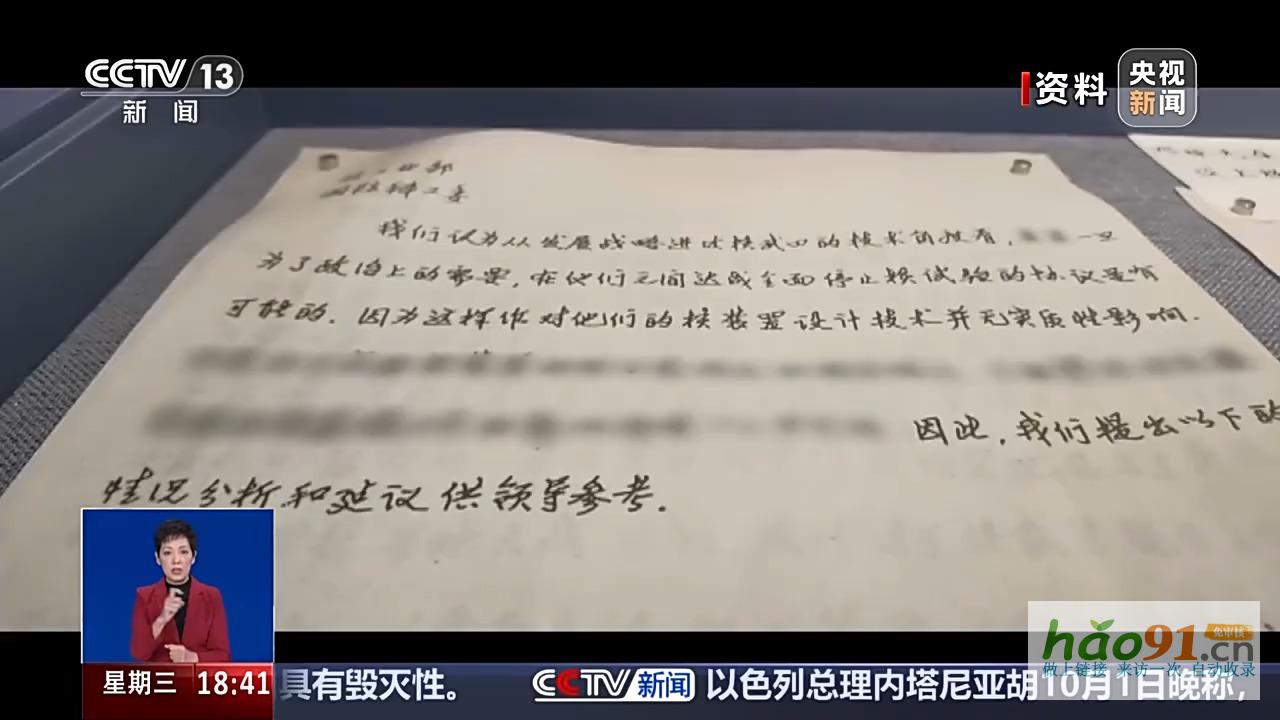 CCTV 13
新闻
资料
央视
新闻
国防科工委
我们认为从发展战略进攻核武器的技术角度看,
一旦
为了政治上的需要,在他们之间达成全面停止核试验的协议是有
可能的.因为这样作对他们的核装置设计技术并无实质性影响.
因此,我们提出以下的
情况分析和建议供领导参考.
hao91.cn
免审核
做上链接 来访一次 自动收录
星期三 18:41 具有毁灭性。 CCTV 新闻 以色列总理内塔尼亚胡10月1日晚称,